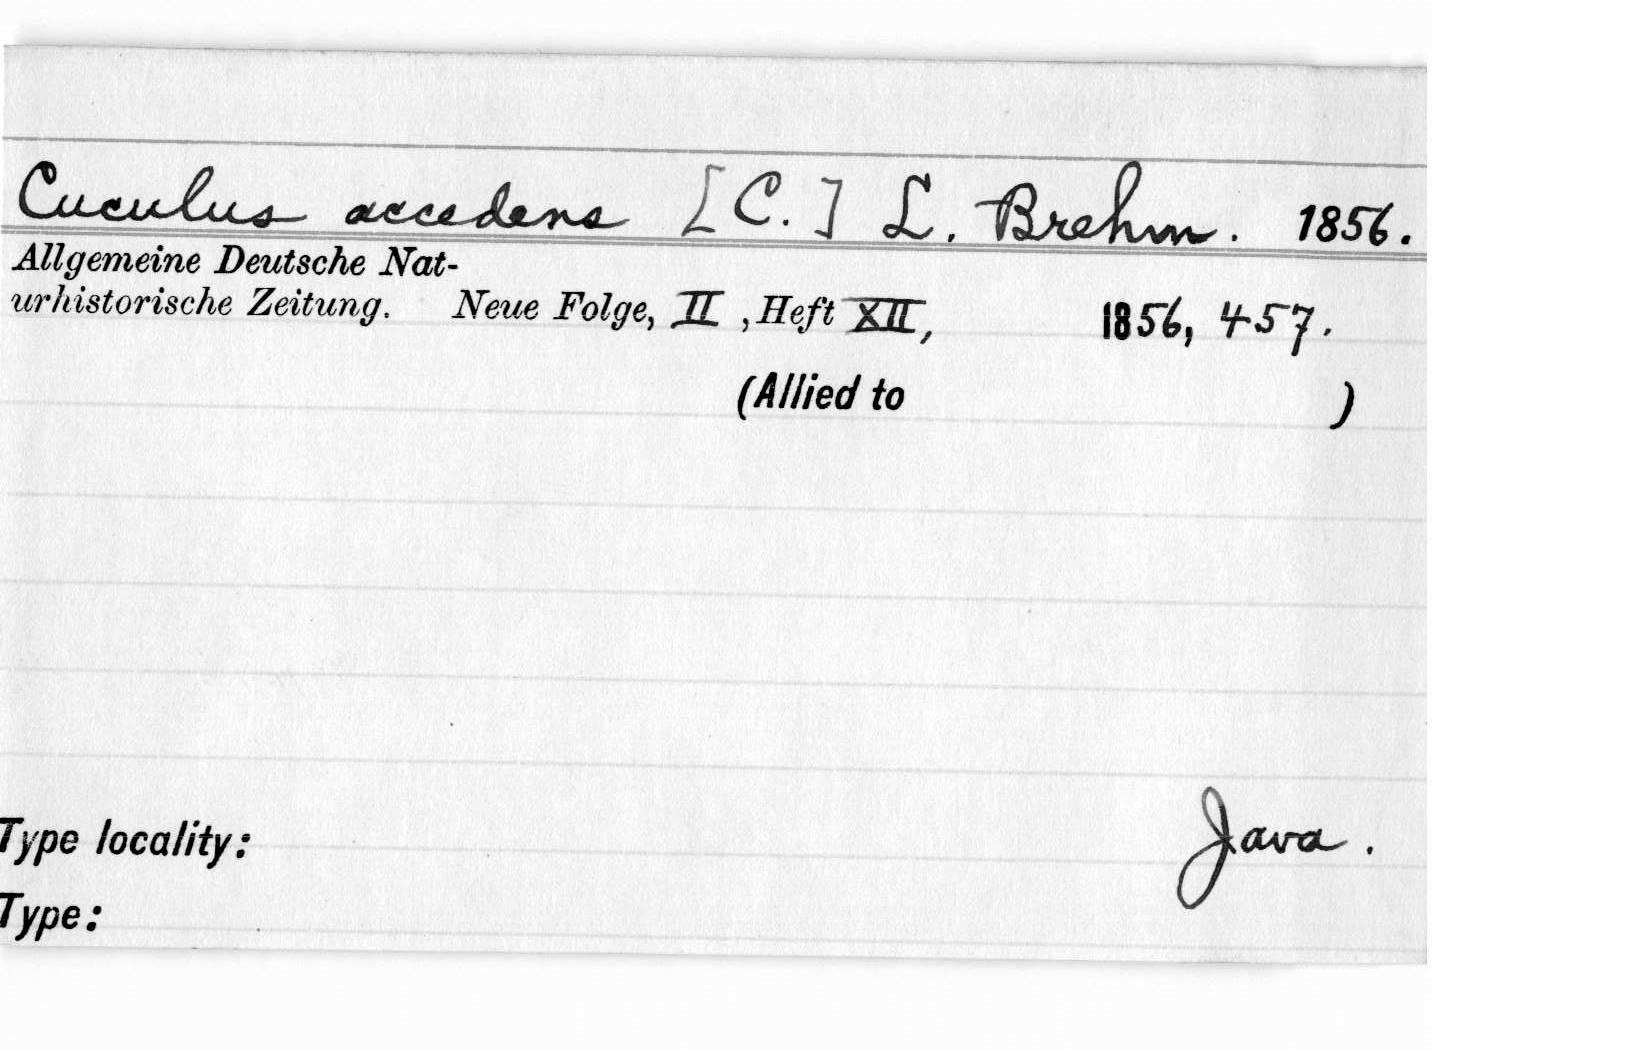 Cuculus accedens [C.] L. Brehm. 1856.
Allgemeine Deutsche Nat-
urhistorische Zeitung. Neue Folge, II, Heft XII, 1856, 457.
(Allied to )
Type locality: Java.
Type: